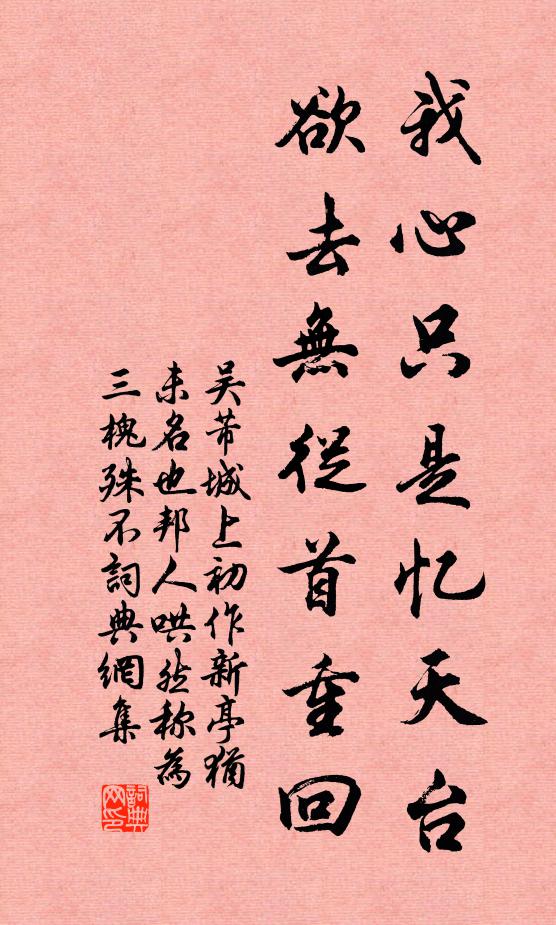 我心只是忆天台
欲去無從首重回
吴芾城上初作新亭猶
未名也邦人哄然称為
三槐殊不詞典網集
詞典网印